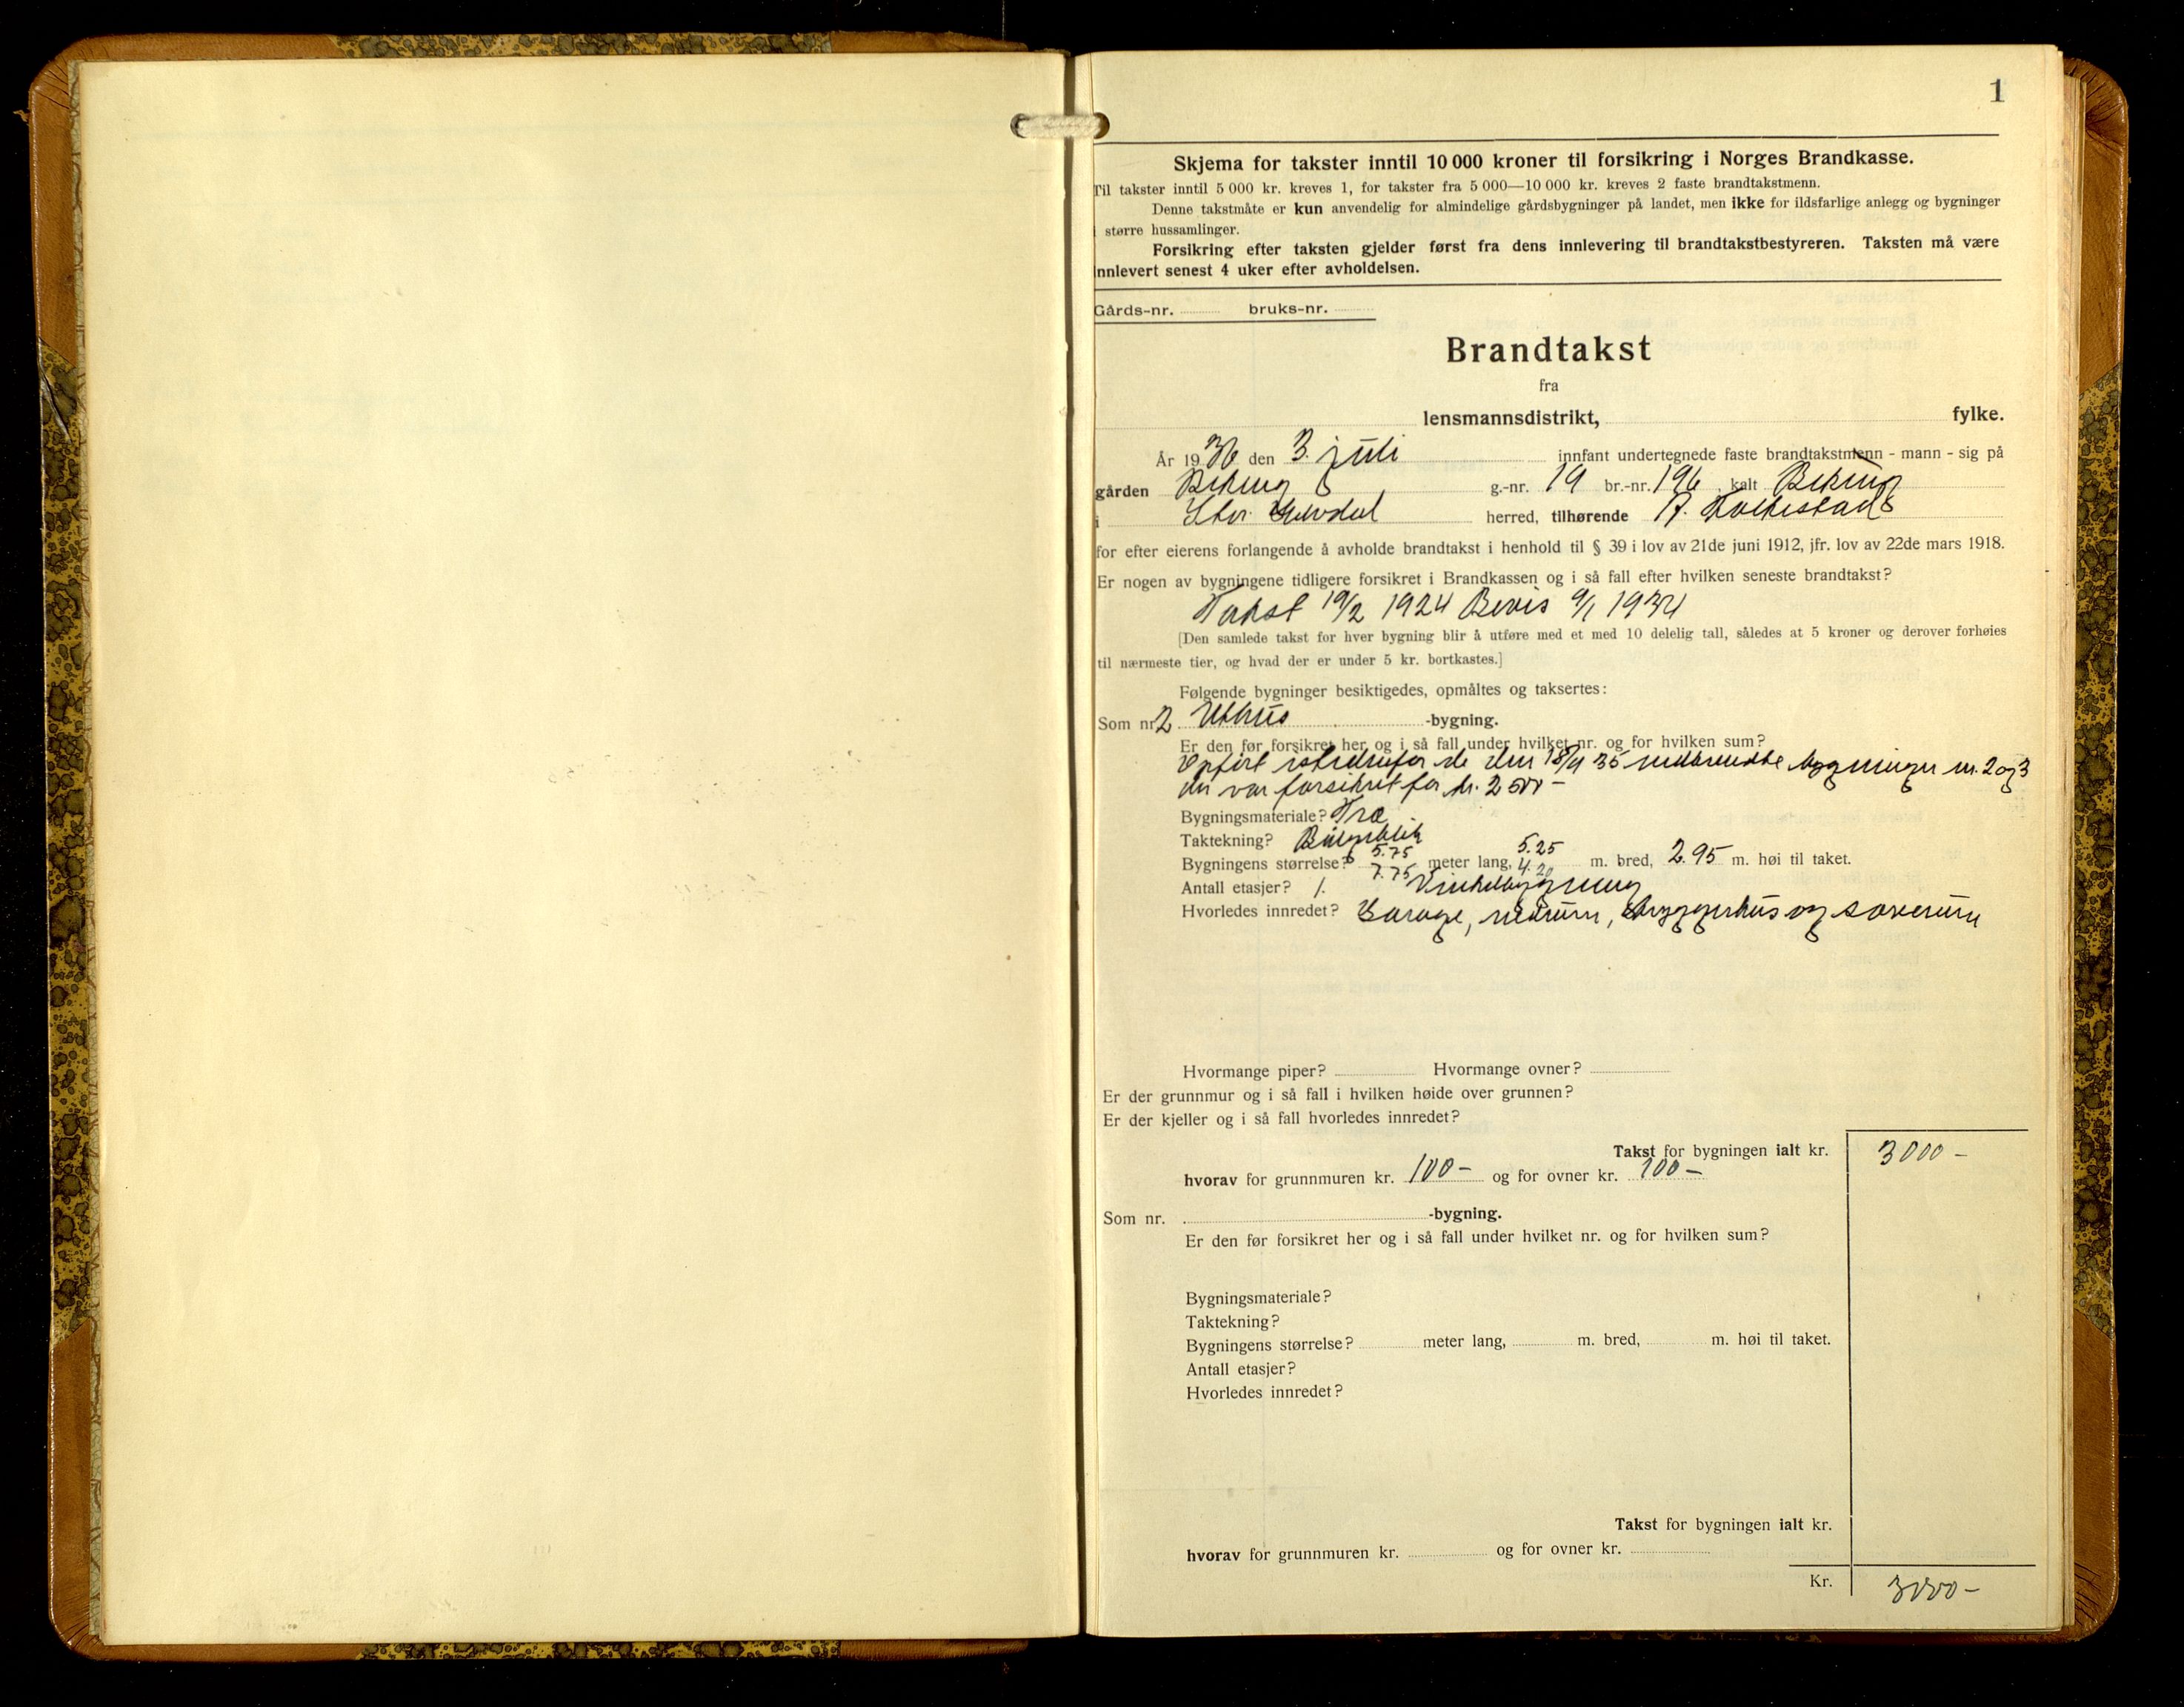 1
Skjema for takster inntil 10 000 kroner til forsikring i Norges Brandkasse.
Til takster inntil 5 000 kr. kreves 1, for takster fra 5 000—10 000 kr. kreves 2 faste brandtakstmenn.
Denne takstmåte er kun anvendelig for almindelige gårdsbygninger på landet, men ikke for ildsfarlige anlegg og bygninger
i større hussamlinger.
Forsikring efter taksten gjelder først fra dens innlevering til brandtakstbestyreren. Taksten må være
innlevert senest 4 uker efter avholdelsen.
Gårds-nr. bruks-nr.
Brandtakst
fra
lensmannsdistrikt, fylke.
År 1936 den 3. juli innfant undertegnede faste brandtakstmenn - mann - sig på
gården g.-nr. 19 br.-nr. 196, kalt
i Stor Elvdal herred, tilhørende A. Kolkestad
for efter eierens forlangende å avholde brandtakst i henhold til § 39 i lov av 21de juni 1912, jfr. lov av 22de mars 1918.
Er nogen av bygningene tidligere forsikret i Brandkassen og i så fall efter hvilken seneste brandtakst?
Takst 19/2 1924 Bevis 9/1 1934
[Den samlede takst for hver bygning blir å utføre med et med 10 delelig tall, således at 5 kroner og derover forhøies
til nærmeste tier, og hvad der er under 5 kr. bortkastes.]
Følgende bygninger besiktigedes, opmåltes og taksertes:
Som nr. 2 Uthus -bygning.
Er den før forsikret her og i så fall under hvilket nr. og for hvilken sum?
Opført istedenfor de den 18/11 35 nedbrendte bygninger nr. 2 og 3
der var forsikret for kr. 2500 -
Bygningsmateriale? Træ
Taktekning? Bølgeblik
Bygningens størrelse? 5.75 7.75 meter lang, 5.25 4.20 m. bred, 2.95 m. høi til taket.
Antall etasjer? 1. Vinkelbygning
Hvorledes innredet? Garage, vedrum, bryggerhus og soverum
Hvormange piper? Hvormange ovner?
Er der grunnmur og i så fall i hvilken høide over grunnen?
Er der kjeller og i så fall hvorledes innredet?
Takst for bygningen ialt kr. 3000 -
hvorav for grunnmuren kr. 100 - og for ovner kr. 100 -
Som nr. -bygning.
Er den før forsikret her og i så fall under hvilket nr. og for hvilken sum?
Bygningsmateriale?
Taktekning?
Bygningens størrelse? meter lang, m. bred, m. høi til taket.
Antall etasjer?
Hvorledes innredet?
Takst for bygningen ialt kr.
hvorav for grunnmuren kr. og for ovner kr.
Kr. 3000 -